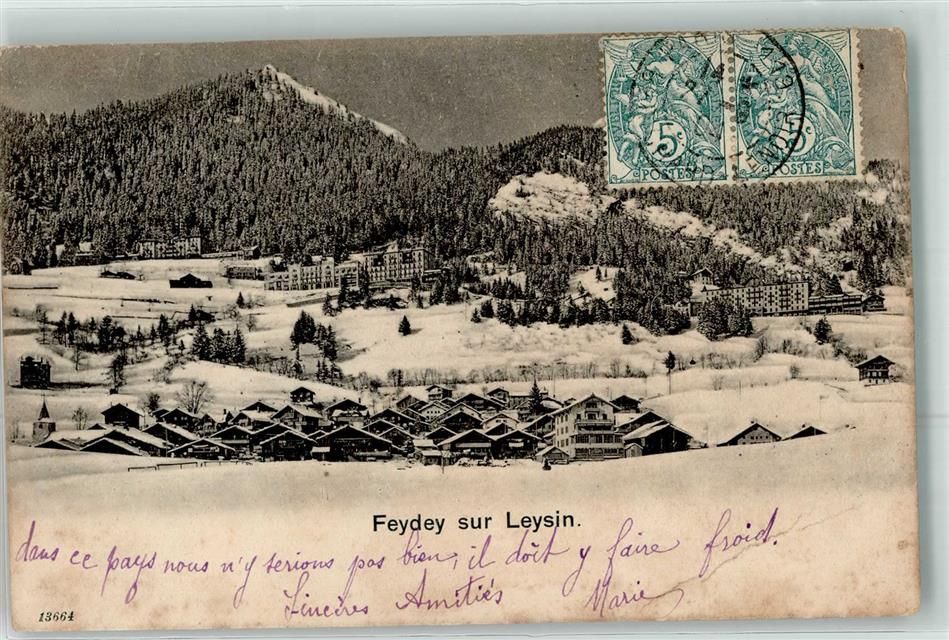 5c
POSTES
5c
POSTES
Feydey sur Leysin.
dans ce pays nous n'y serions pas bien, il doit y faire froid.
Sincères Amitiés Marie
13664